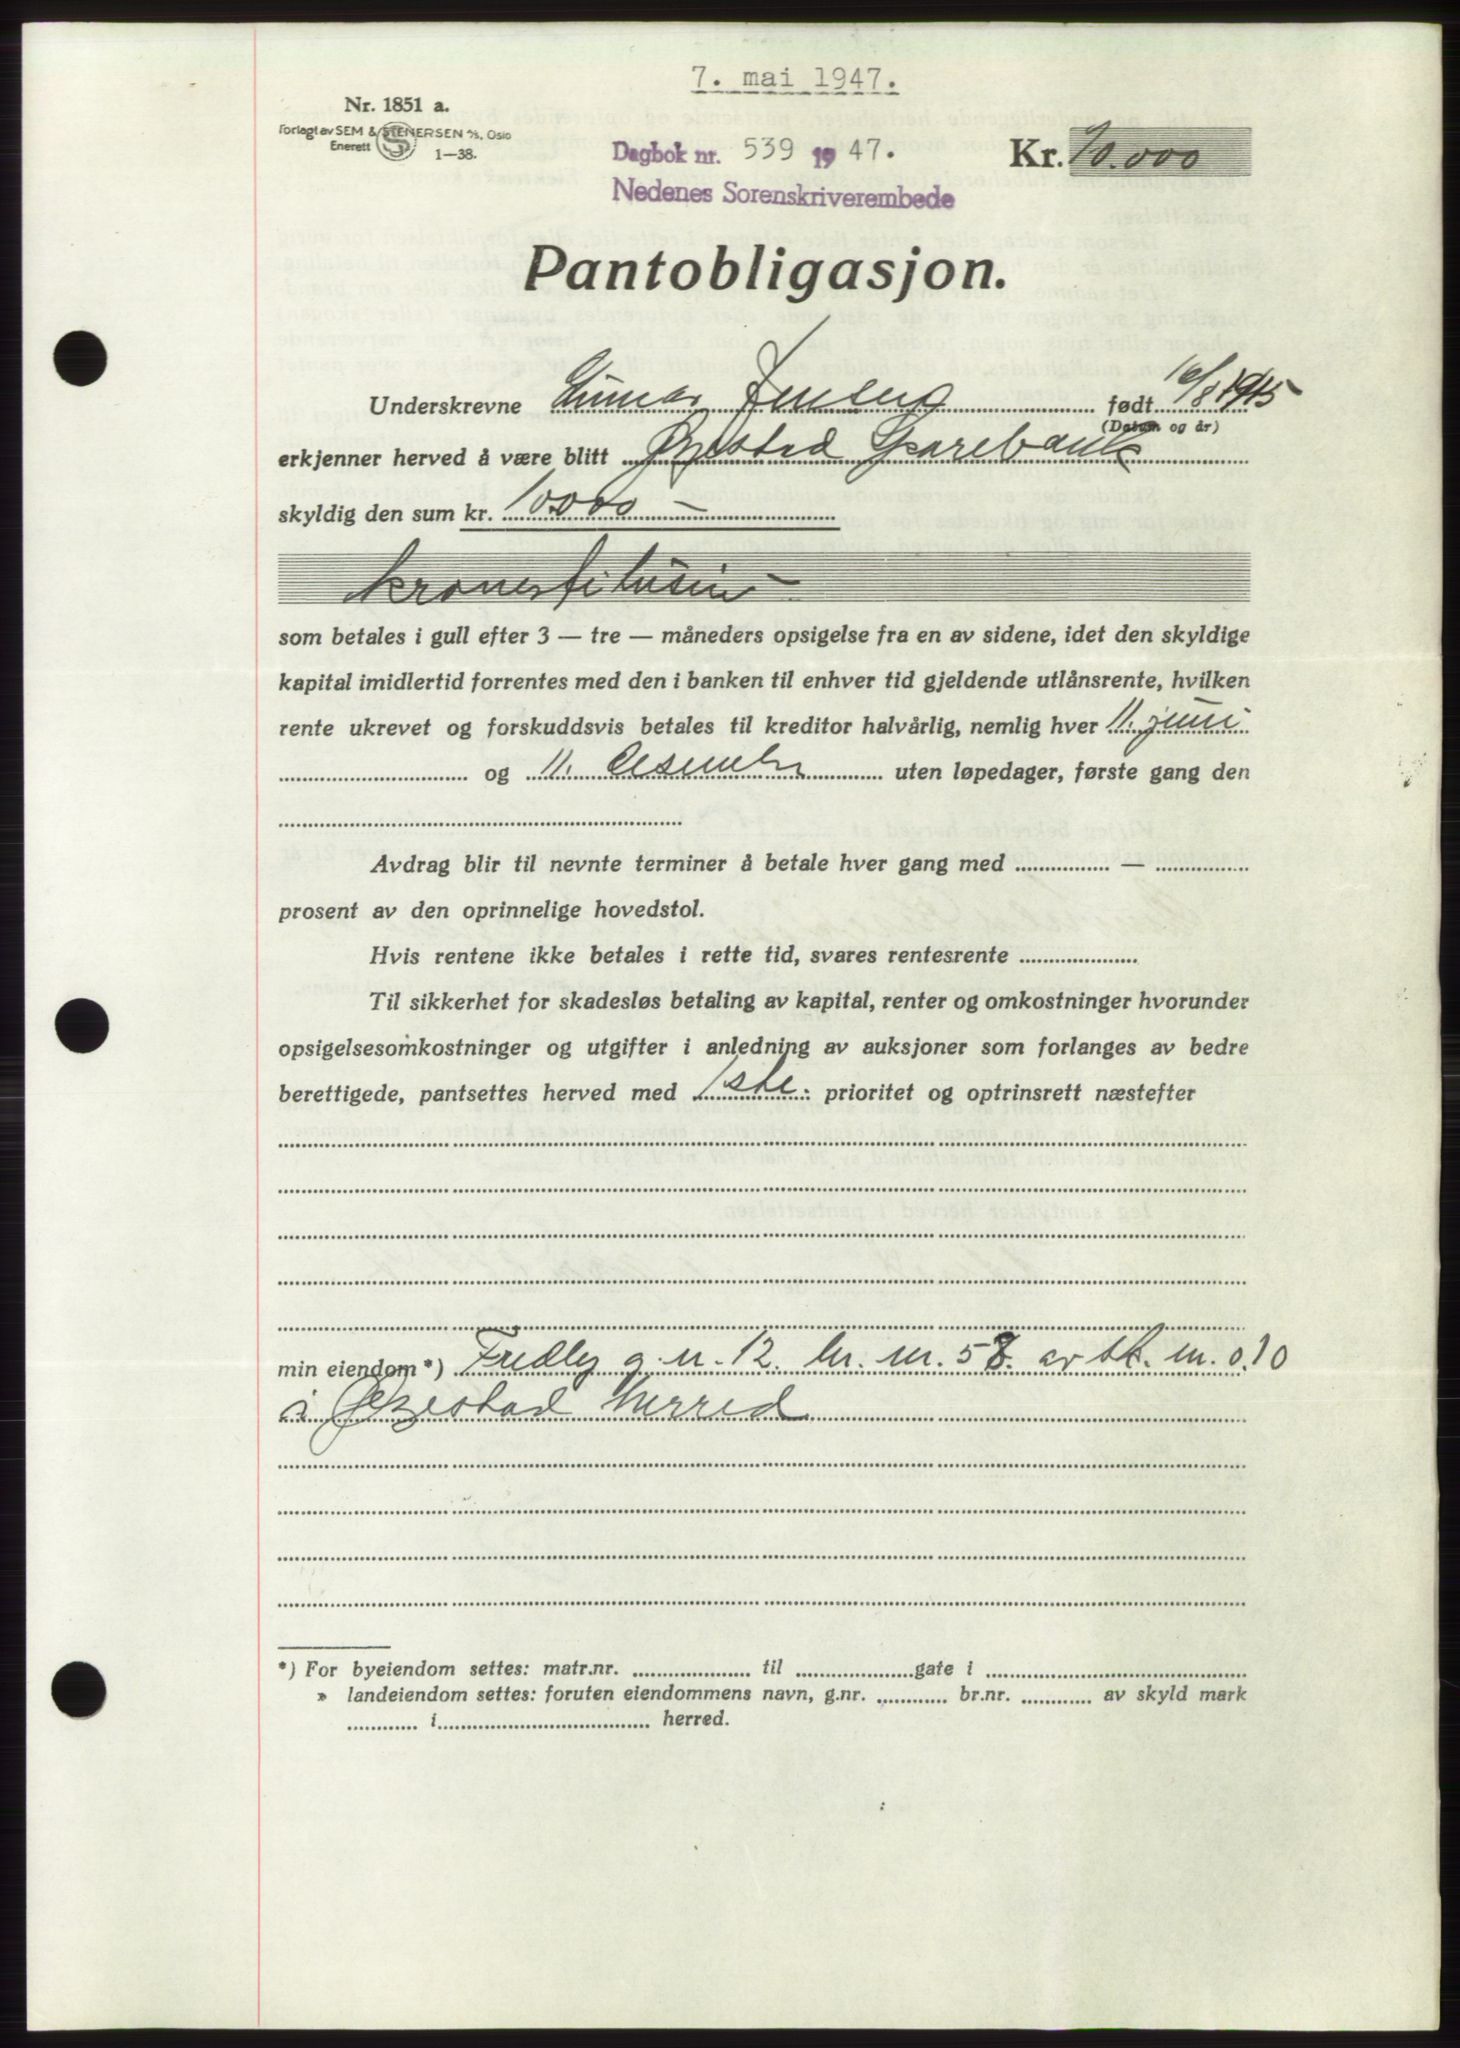 7. mai 1947.
Nr. 1851 a.
Forlagt av SEM & STENERSEN A/S, Oslo
Enerett 1—38.
Dagbok nr. 539 1947.
Kr. 10.000
Nedenes Sorenskriverembede
Pantobligasjon.
Underskrevne Gunnar Jensen født 16/8 1915
(Datum og år)
erkjenner herved å være blitt Øyestad Sparebank
skyldig den sum kr. 10000 —
kroner titusin —
som betales i gull efter 3 — tre — måneders opsigelse fra en av sidene, idet den skyldige
kapital imidlertid forrentes med den i banken til enhver tid gjeldende utlånsrente, hvilken
rente ukrevet og forskuddsvis betales til kreditor halvårlig, nemlig hver 11. juni
og 11. desember uten løpedager, første gang den
Avdrag blir til nevnte terminer å betale hver gang med —
prosent av den oprinnelige hovedstol.
Hvis rentene ikke betales i rette tid, svares rentesrente
Til sikkerhet for skadesløs betaling av kapital, renter og omkostninger hvorunder
opsigelsesomkostninger og utgifter i anledning av auksjoner som forlanges av bedre
berettigede, pantsettes herved med 1ste prioritet og optrinsrett næstefter
min eiendom*) Fredly g. n. 12 br. nr. 58 av sk. m. 0.10
i Øyestad herred
*) For byeiendom settes: matr.nr. til gate i
» landeiendom settes: foruten eiendommens navn, g.nr. br.nr. av skyld mark
i herred.